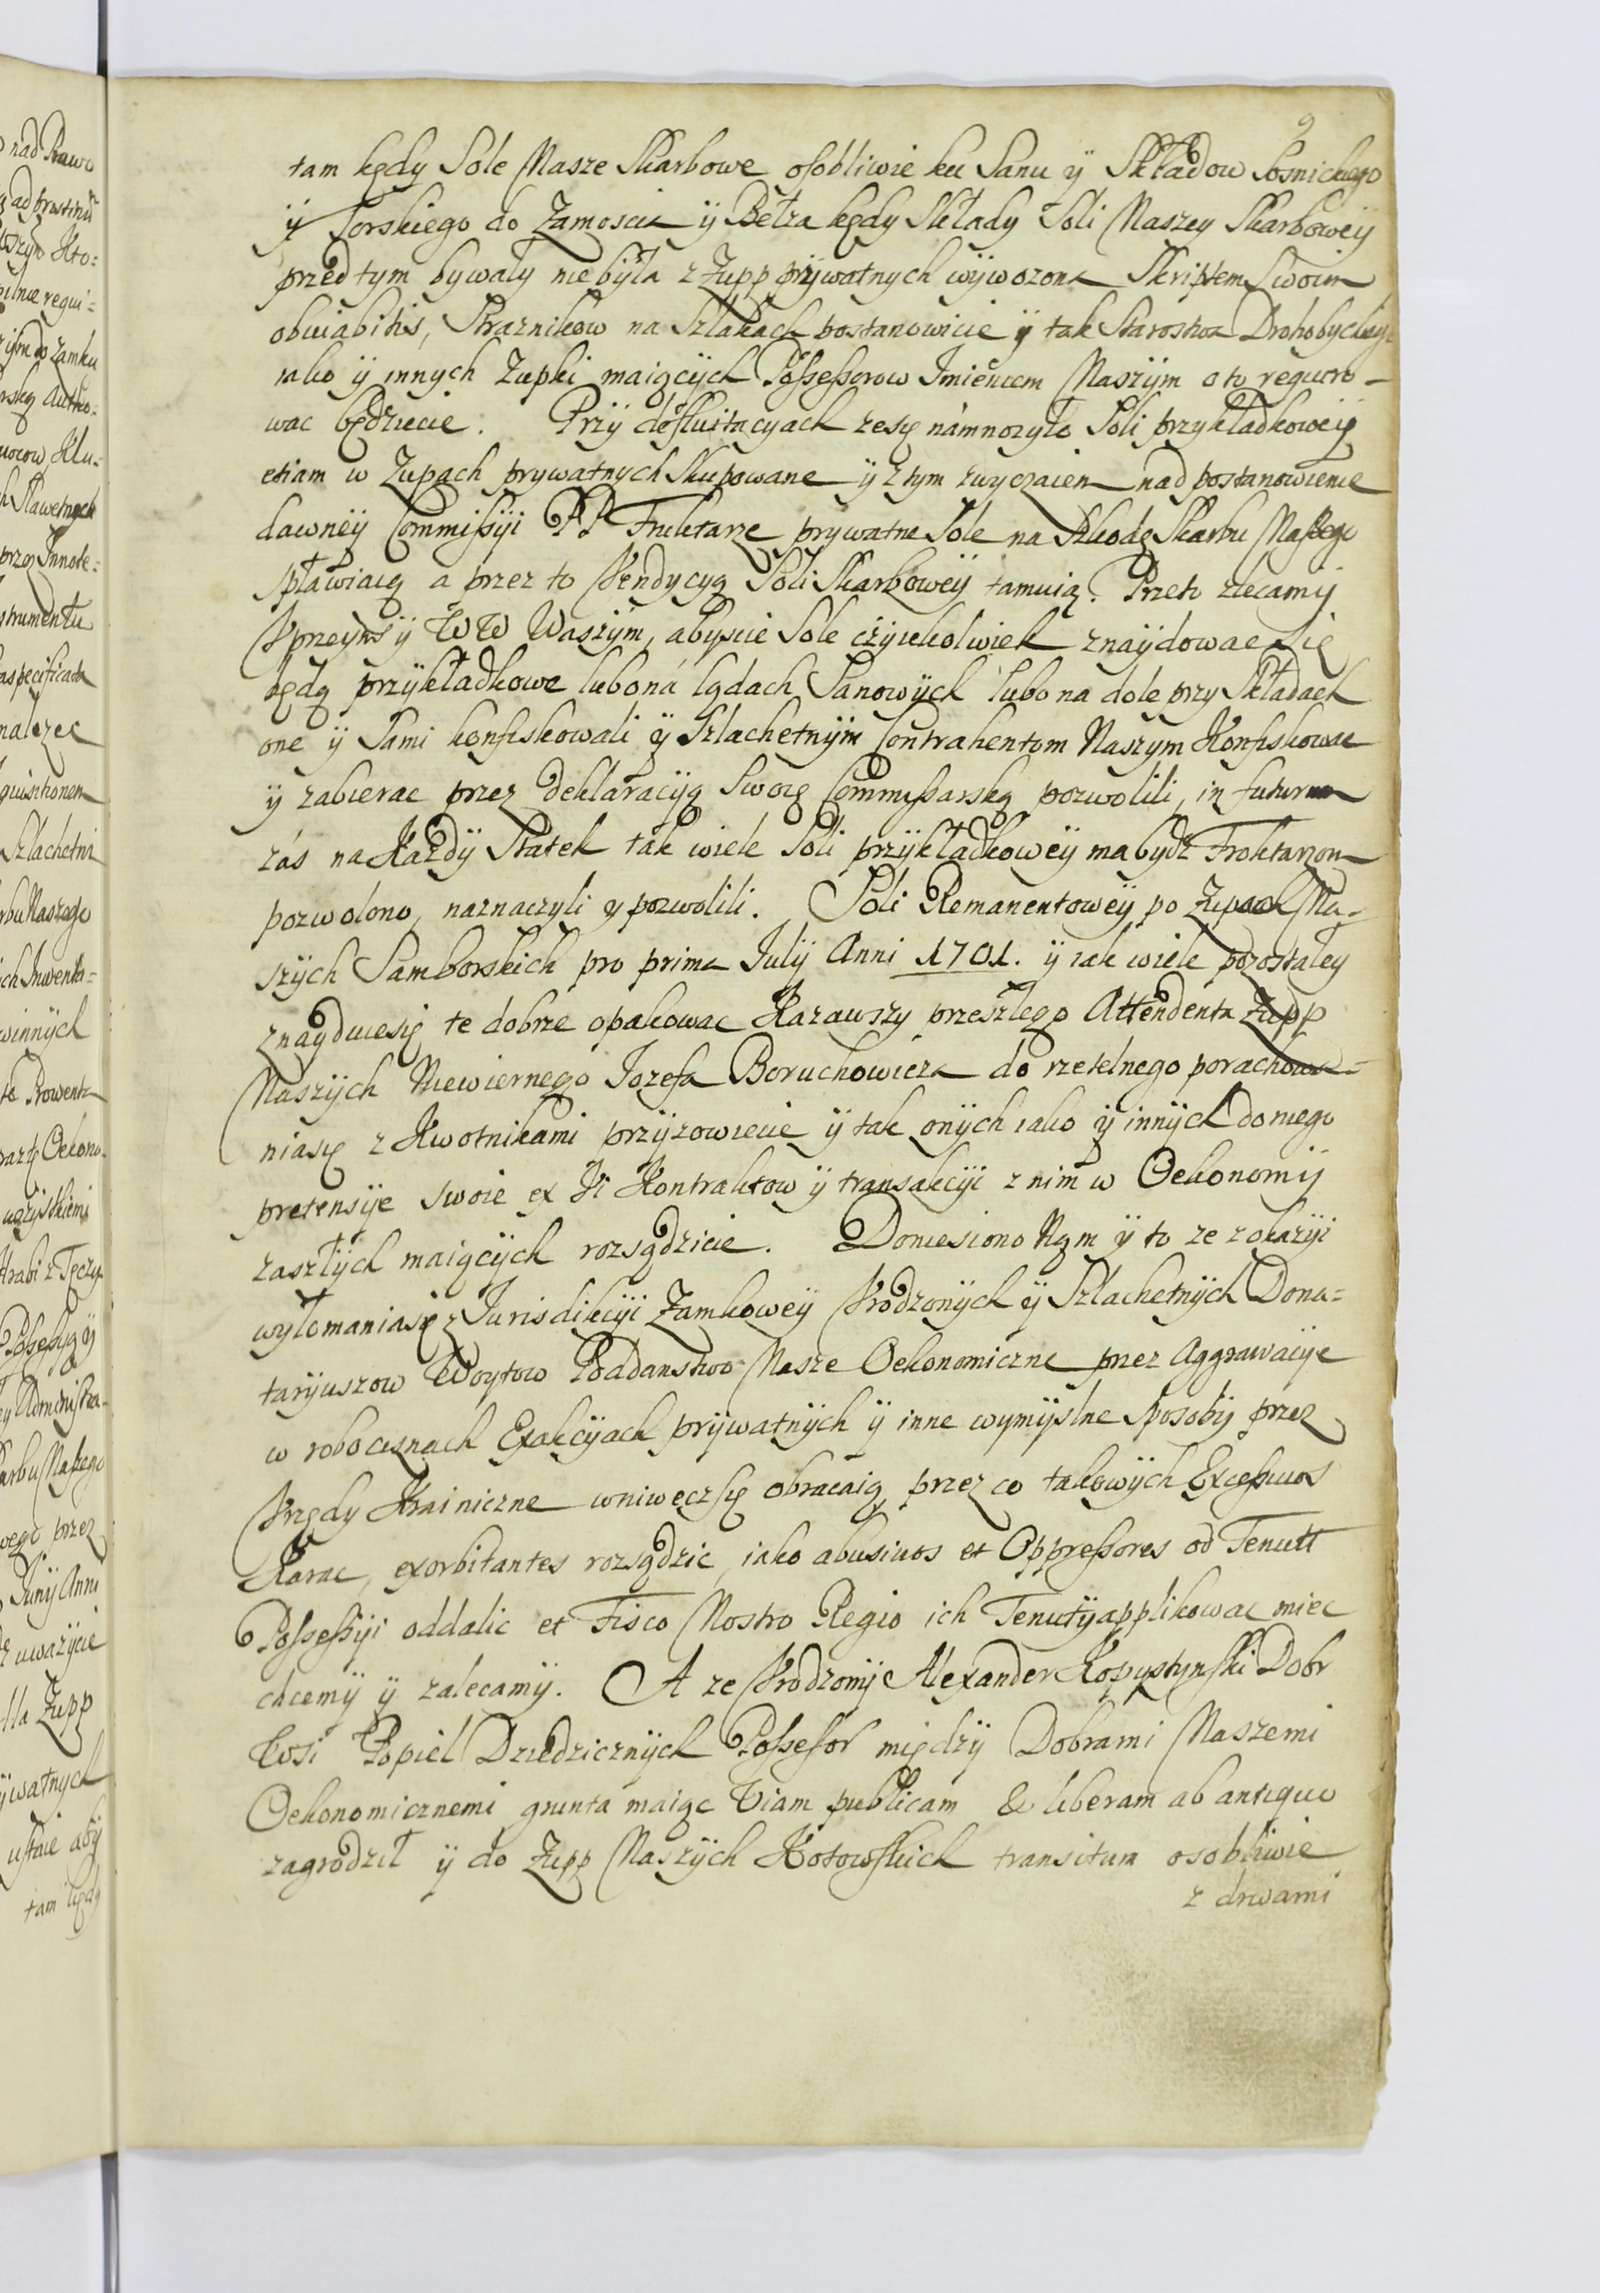 9
tam kędy Sole Nasze Skarbowe osobliwie ku Sanu ÿ Składow Sosnickiego
ÿ Torskiego do Zamoscia ÿ Bełza kędy Składy Soli Naszey Skarboweÿ
przed tym bywały nie była z Zupp prÿwatnych wÿwozona Skriptem Swoim
obwiabitis, Straznikow na Szlakach postanowicie ÿ tak Starostwa Drohobyckiego
iako ÿ innych Zupki maiącÿch Possessorow Imieniem Naszÿm o to requiro-
wac będziecie. Przÿ defluitacyach ze się námnozyło Soli przykładkoweÿ
etiam w Zupach prywatnych skupowane ÿ z tym zwyczaiem nad postanowienie
dawneÿ Commissÿi PP Fruktarze prywatne Sole na Szkodę Skarbu Naszego
spławiaią a przez to Wendycyą Soli Skarboweÿ tamuią. Przeto zlecamÿ
Uprzeyms ÿ WW Waszÿm, abyscie Sole czÿiekolwiek znaÿdowac się
będą przÿkładkowe lubo ná lądach Sanowÿch lubo na dole przy Składach
one ÿ Sami konfiskowali ÿ Szlachetnÿm Contrahentom Naszym Konfiskowac
ÿ zabierac przez deklaracÿą Swoię Commissarską pozwolili, in futurum
zás na Kazdÿ Statek ták wiele Soli przÿkładkoweÿ ma bydz Froktarzom
pozwolono, naznaczyli ÿ pozwolili. Soli Remanentoweÿ po Zupach Na-
szÿch Samborskich pro prima Julÿ Anni 1701. ÿ iak wiele pozostałey
znaÿduie się te dobrze opakowac Kazawszy przeszłego Attendenta Zupp
Naszÿch Niewiernego Jozefa Boruchowicza do rzetelnego porachowa-
nia się z Kwotnikami przÿzowiecie ÿ tak onÿch iako ÿ innÿch do niego
pretensÿe swoie ex Vi Kontraktow ÿ transakcÿi z nim w Oekonomÿ
zaszłÿch maiącÿch rozsądzicie. Doniesiono Nam ÿ to ze z okazÿi
wyłomania się z Jurisdikcÿi Zamkoweÿ Urodzonÿch ÿ Szlachetnÿch Dona-
tarÿuszow Woytow Poddanstwo Nasze Oekonomiczne przez Aggrawacÿe
w robociznach Exakcÿach prÿwatnÿch ÿ inne wymÿslne Sposobÿ przez
Urzędy Krainiczne wniwecz się obracaią, przez co takowÿch Excessivos
Karac, exorbitantes rozsądzic, iako abusivos et Oppressores od Tenutt
Possessÿi oddalic et Fisco Nostro Regio ich Tenutÿ applikowac miec
chcemÿ ÿ zalecamÿ. A ze Urodzonÿ Alexander Kopystynski Dobr
Wsi Popiel Dziedzicznÿch Possessor międzÿ Dobrami Naszemi
Oekonomicznemi grunta maiąc Viam publicam & liberam ab antiquo
zagrodził ÿ do Zupp Naszÿch Kotowskich transitum osobliwie
z drwami
nad Prawo
Szlachetni
winnÿch
przez
Junÿ Anni
uwazÿcie
Zupp
abÿ
tam kędy